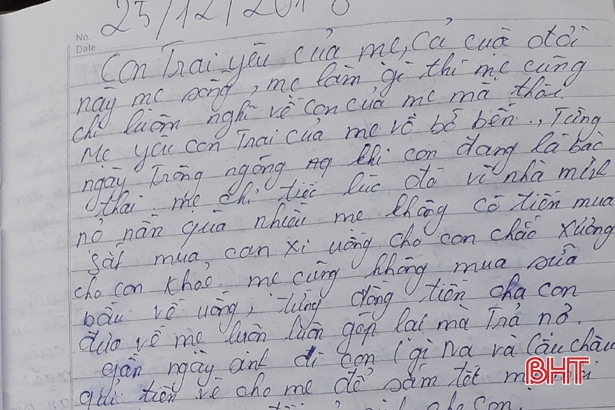 No.
Date
25/12/201
Con Trai yêu của mẹ, Cả cuộc đời
này mẹ sống, mẹ làm gì thì mẹ cũng
chỉ luôn nghĩ về con của mẹ mà thôi
Mẹ yêu con Trai của mẹ vô bờ bến., Từng
ngày Trông ngóng từ khi con đang là bào
thai. mẹ chỉ tiếc lúc đó vì nhà mình
nợ nần quá nhiều mẹ không có tiền mua
sắt mua can xi uống cho con chắc xương
cho con khoẻ. mẹ cũng không mua sữa
bầu về uống, từng đồng tiền cha con
đưa về mẹ luôn luôn góp lại mà Trả nợ.
gần ngày sinh dì con (gì Na và Cậu châu
gửi tiền về cho mẹ để sắm tết
con
BHT